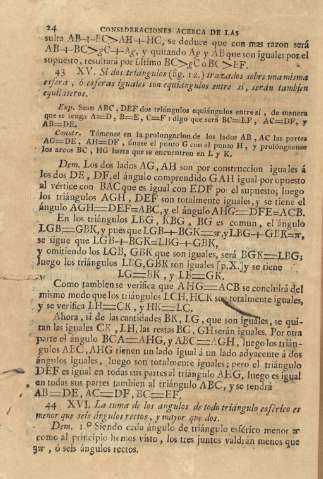 24 CONSIDERACIONES ACERCA DE LAS
sulta AB+BC>AH+HC, se deduce que con mas razon será
AB+BC>gC+Ag, y quitando Ag y AB que son iguales por el
supuesto, resultará por último BC>gC ó BC>EF.
43 XV. Si dos triángulos (fig. 12.) trazados sobre una misma
esfera, ó esferas iguales son equiángulos entre sí, serán tambien
equiláteros.
Exp. Sean ABC, DEF dos triángulos equiángulos entre sí, de manera
que se tenga A=D, B=E, C=F: digo que será BC=EF, AC=DF, y
AB=DE.
Constr. Tómense en la prolongacion de los lados AB, AC las partes
AG=DE, AH=DF, únase el punto G con el punto H, y prolónguense
los arcos BC, HG hasta que se encuentren en L y K.
Dem. Los dos lados AG, AH son por construccion iguales á
los dos DE, DF, el ángulo comprendido GAH igual por opuesto
al vértice con BAC que es igual con EDF por el supuesto, luego
los triángulos AGH, DEF son totalmente iguales, y se tiene el
ángulo AGH=DEF=ABC, y el ángulo AHG=DFE=ACB.
En los triángulos LBG, KBG, BG es comun, el ángulo
LGB=GBK, y pues que LGB+BGK=π y LBG+GBK=π,
se sigue que LGB+BGK=LBG+GBK,
y omitiendo los LGB, GBK que son iguales, será BGK=LBG;
luego los triángulos LBG, GBK son iguales [p.X.] y se tiene
LG=BK, y LB=GK.
Como tambien se verifica que AHG=ACB se concluirá del
mismo modo que los triángulos LCH, HCK son totalmente iguales,
y se verifica LH=CK, y HK=LC.
Ahora, si de las cantidades BK, LG, que son iguales, se qui-
tan las iguales CK, LH, las restas BC, GH serán iguales. Por otra
parte el ángulo BCA=AHG, y ABC=AGH, luego los trián-
gulos ABC, AHG tienen un lado igual á un lado adyacente á dos
ángulos iguales, luego son totalmente iguales; pero el triángulo
DEF es igual en todas sus partes al triángulo AHG, luego es igual
en todas sus partes tambien al triángulo ABC, y se tendrá
AB=DE, AC=DF, BC=EF.
44 XVI. La suma de los ángulos de todo triángulo esférico es
menor que seis ángulos rectos, y mayor que dos.
Dem. 1.º Siendo cada ángulo de triángulo esférico menor π
como al principio hemos visto, los tres juntos valdrán menos que
3π, ó seis ángulos rectos.